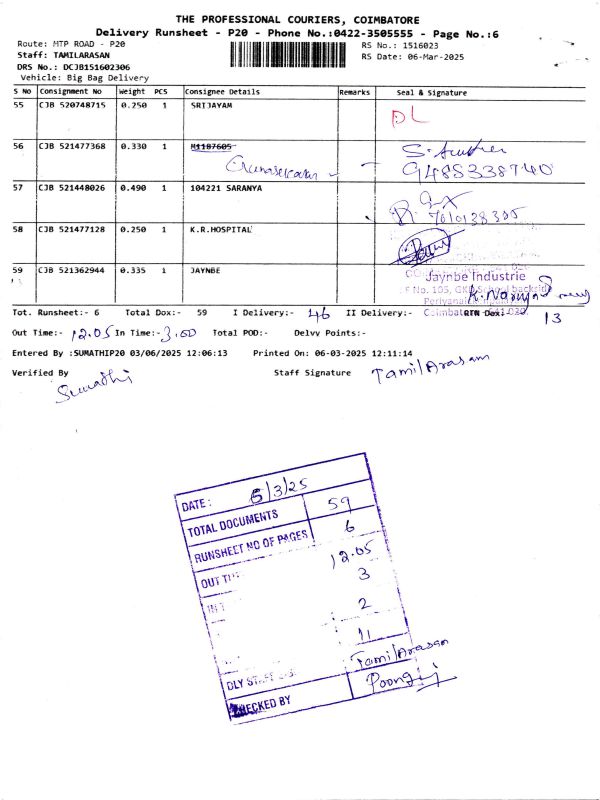 THE PROFESSIONAL COURIERS, COIMBATORE
Delivery Runsheet - P20 - Phone No.:0422-3505555 - Page No.:6
Route: MTP ROAD - P20
Staff: TAMILARASAN
DRS No.: DCJB151602306
Vehicle: Big Bag Delivery
RS No.: 1516023
RS Date: 06-Mar-2025
S No Consignment No Weight PCS Consignee Details Remarks Seal & Signature
55 CJB 520748715 0.250 1 SRIJAYAM DL
56 CJB 521477368 0.330 1 M1187605
9485338740
57 CJB 521448026 0.490 1 104221 SARANYA
7010138305
58 CJB 521477128 0.250 1 K.R.HOSPITAL
59 CJB 521362944 0.335 1 JAYNBE
Jaynbe Industrie
No. 105, GKD School backside
Periyanai
Coimbatore 641 020.
Tot. Runsheet:- 6 Total Dox:- 59 I Delivery:- 46 II Delivery:- RTN Dox: 13
Out Time:- 12.05 In Time:- 3.00 Total POD:- Delvy Points:-
Entered By :SUMATHIP20 03/06/2025 12:06:13 Printed On: 06-03-2025 12:11:14
Verified By Sumathi Staff Signature TamilArasan
DATE: 6/3/25
TOTAL DOCUMENTS 59
RUNSHEET NO OF PAGES 6
OUT 12.05
3
2
11
DLY TamilArasan
CHECKED BY